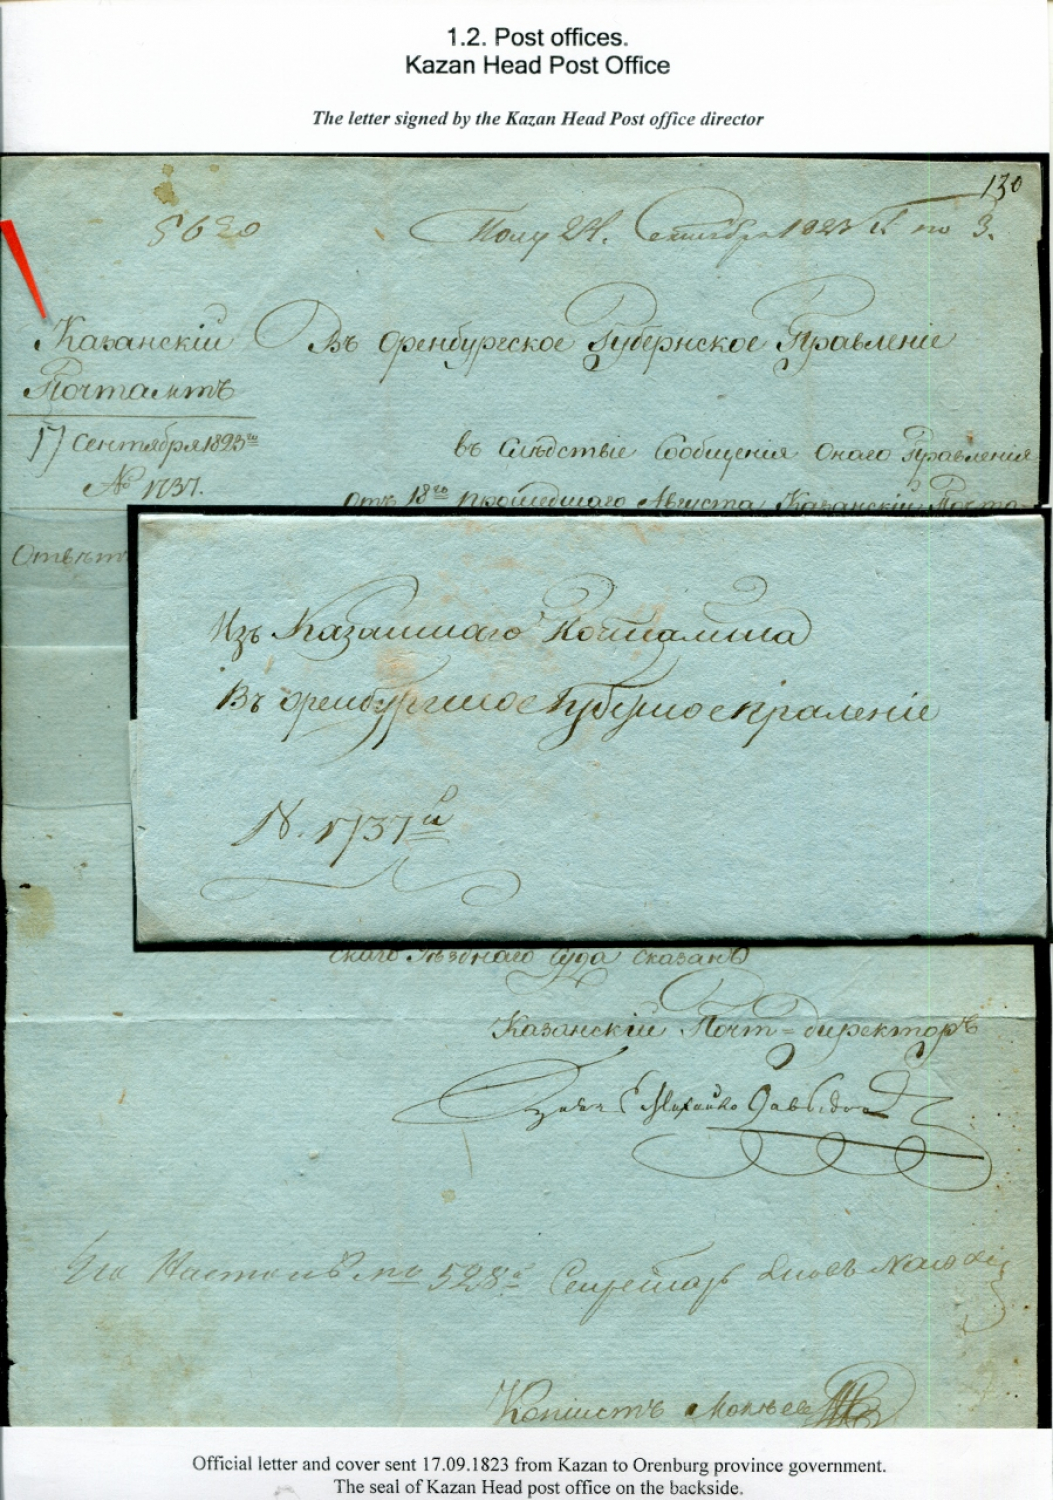 1.2. Post offices.
Kazan Head Post Office
The letter signed by the Kazan Head Post office director
130
5630
Полу 24. Сентября 1823 по 3.
Казанскій
Почтамтъ
17 Сентября 1823го
№ 1737.
Въ Оренбургское Губернское Правленіе
въ Слѣдствіе Сообщенія Онаго Правленія
отъ 18го прошедшаго Августа Казанскій Почта-
Отвѣтъ
Изъ Казанскаго Почтамта
Въ оренбургское Губернское правленіе
N. 1737й
скаго Уѣзднаго Суда Сказанъ
Казанскій Почт-директоръ
Давыдов
528
Секретарь
Копіистъ
Official letter and cover sent 17.09.1823 from Kazan to Orenburg province government.
The seal of Kazan Head post office on the backside.